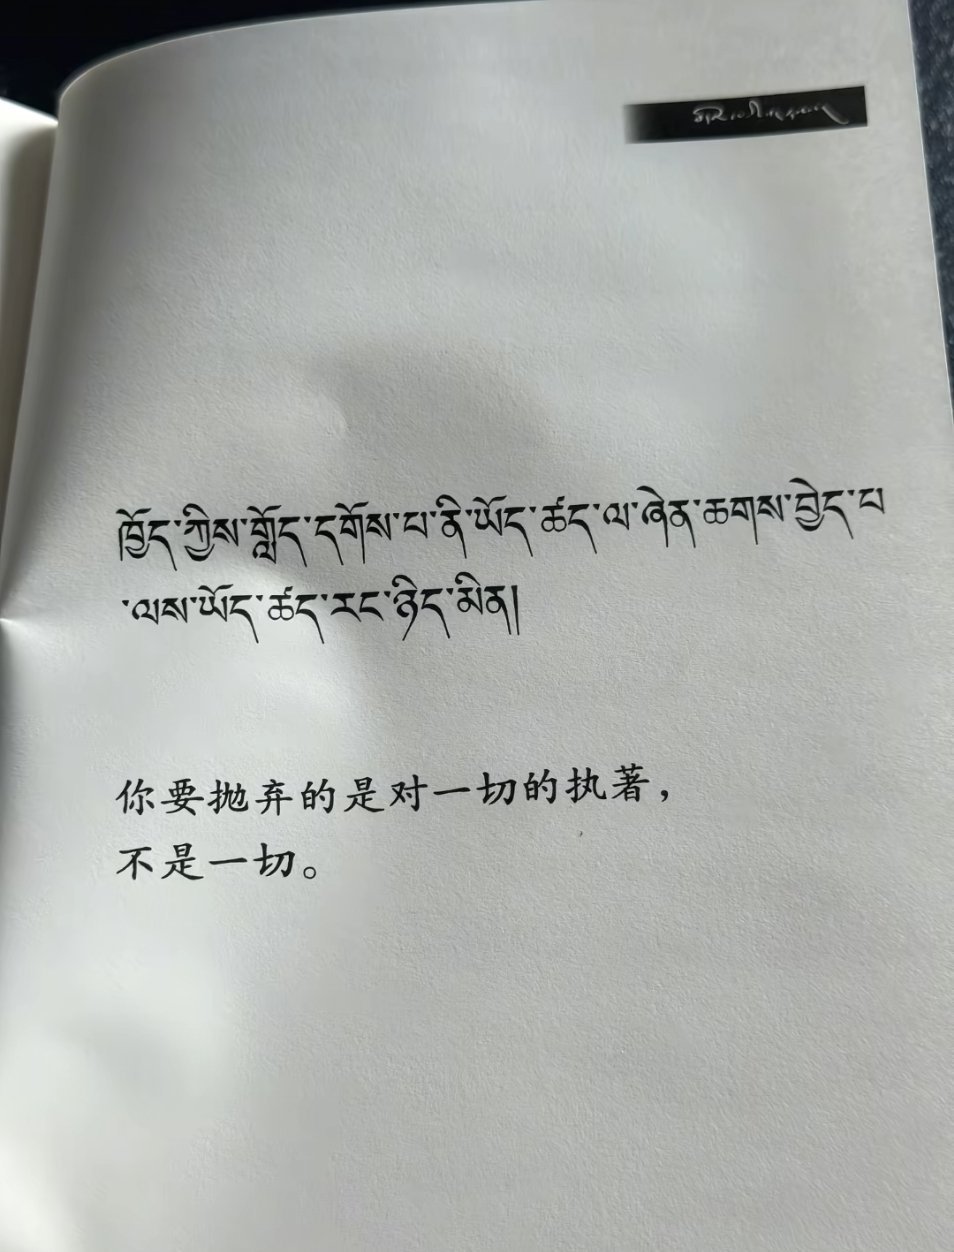 ཁྱོད་ཀྱིས་གློད་དགོས་པ་ནི་ཡོད་ཚད་ལ་ཞེན་ཆགས་བྱེད་པ
་ལས་ཡོད་ཚད་རང་ཉིད་མིན།
你要抛弃的是对一切的执著，
不是一切。